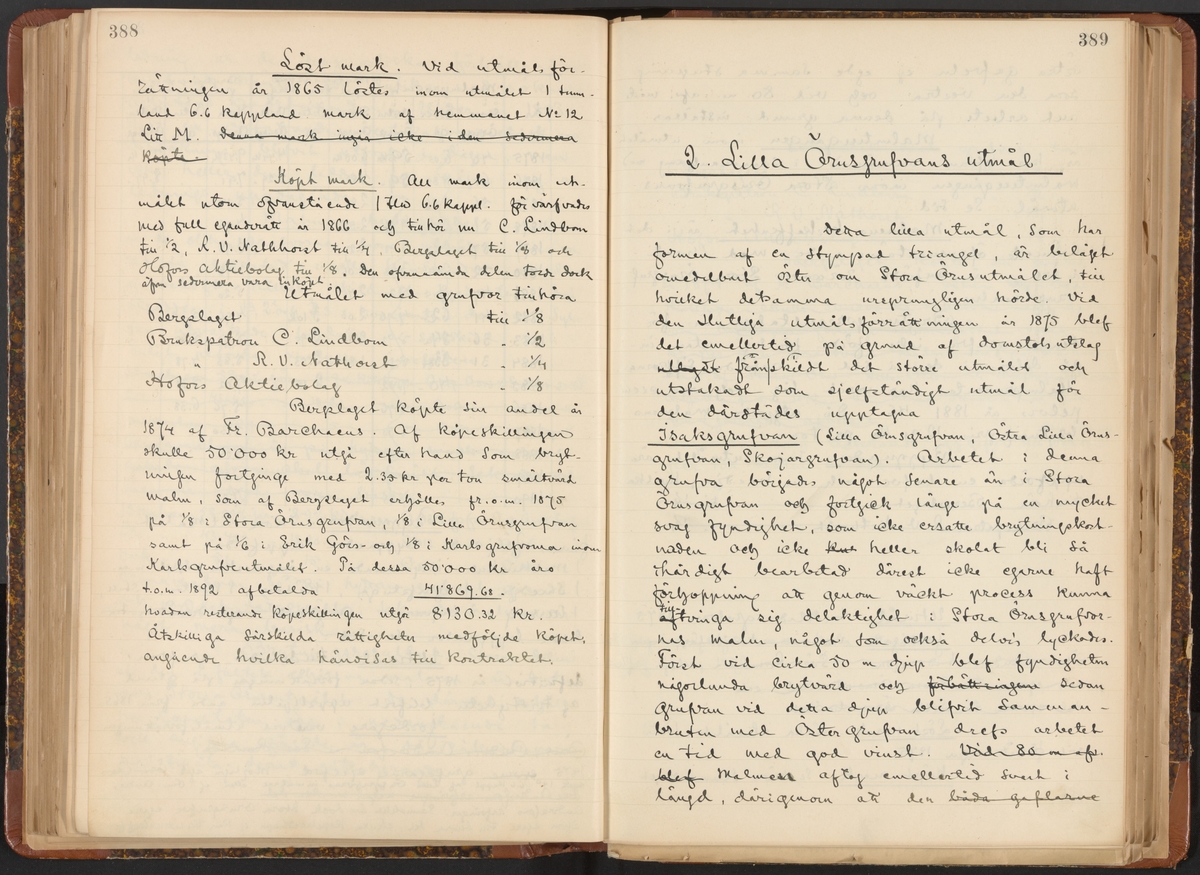 388
Löst mark. Vid utmålsför-
rättningen år 1865 löstes inom utmålet 1 tunn-
land 6.6 kappland mark af hemmanet No 12
Litt M. Denna mark ingår icke i den sedermera
köpta
Köpt mark. All mark inom ut-
målet utom ofvanstående 1 Tld 6.6 kappl. förvärfvades
med full eganderätt år 1866 och tillhör nu C. Lindbom
till 1/2, R. V. Nathhorst till 1/4, Bergslaget till 1/8 och
Hofors Aktiebolag till 1/8. Den ofvannämda delen torde dock
äfven sedermera vara inköpt.
Utmålet med grufvor tillhöra
Bergslaget till 1/8
Brukspatron C. Lindbom " 1/2
" R. V. Nathorst " 1/4
Hofors Aktiebolag " 1/8
Bergslaget köpte sin andel år
1874 af Fr. Barchaeus. Af köpeskillingen
skulle 50'000 kr utgå efter hand som bryt-
ningen fortginge med 2.30 kr per ton smältvärd
malm, som af Bergslaget erhölles fr.o.m. 1875
på 1/8 i Stora Örnsgrufvan, 1/8 i Lilla Örnsgrufvan
samt på 1/6 i Erik Görs- och 1/8 i Karlsgrufvorna inom
Karlsgrufveutmålet. På dessa 50'000 kr äro
t.o.m. 1892 afbetalda 41'869.68.
hvadan resterande köpeskillingen utgör 8'130.32 kr.
Åtskilliga särskilda rättigheter medföljde köpet,
angående hvilka hänvisas till kontraktet.
389
2. Lilla Örnsgrufvans utmål
Detta lilla utmål, som har
formen af en stympad triangel, är beläget
omedelbart öster om Stora Örnsutmålet, till
hvilket detsamma ursprungligen hörde. Vid
den slutliga utmålsförrättningen år 1875 blef
det emellertid på grund af domstolsutslag
frånskildt det större utmålet och
utstakadt som sjelfständigt utmål för
den därstädes upptagna
Isaksgrufvan (Lilla Örnsgrufvan, Östra Lilla Örns-
grufvan, Skojargrufvan). Arbetet i denna
grufva börjades något senare än i Stora
Örnsgrufvan och fortgick länge på en mycket
svag fyndighet, som icke ersatte brytningskost-
naden och icke heller skolat bli så
ihärdigt bearbetad därest icke egarne haft
förhoppning att genom väckt process kunna
tilltvinga sig delaktighet i Stora Örnsgrufvor-
nas malm, något som också delvis lyckades.
Först vid cirka 50 m djup blef fyndigheten
någorlunda brytvärd och förbättringen sedan
grufvan vid detta djup blifvit samman-
bruten med Östergrufvan drefs arbetet
en tid med god vinst. Vid 80 m afv.
blef Malmen aftog emellertid snart i
längd, därigenom att den båda gaflarne